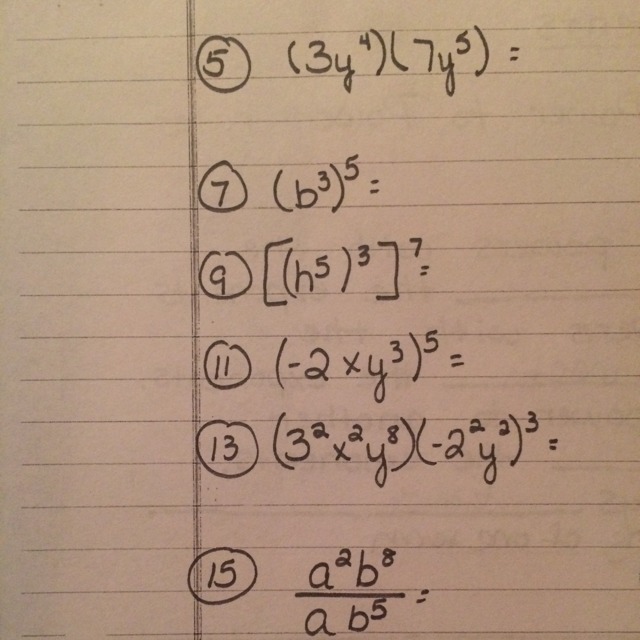 5 (3y⁴)(7y⁵) =
7 (b³)⁵ =
9 [(h⁵)³]⁷ =
11 (-2xy³)⁵ =
13 (3²x²y⁸)(-2²y²)³ =
15 a²b⁸
ab⁵ =